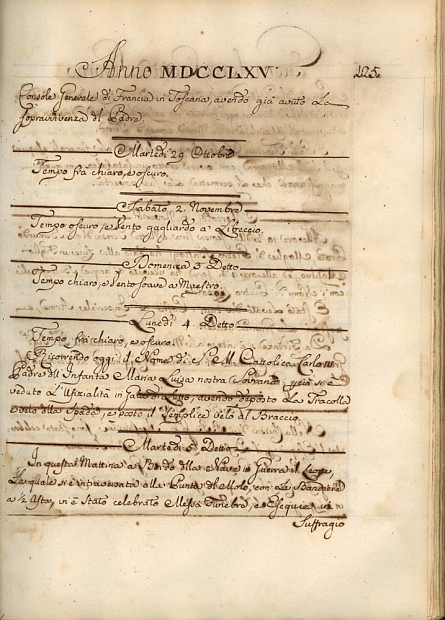 Anno MDCCLXV 125
Console Generale di Francia in Toscana, avendo già avuto La
Sopravivenza del Padre.
Martedì 29 Ottobre
Tempo frà chiaro, e oscuro.
Sabato 2. Novembre
Tempo oscuro, e Vento gagliardo a Libeccio.
Domenica 3 Detto
Tempo chiaro, e Vento soave a Maestro.
Lunedì 4. Detto
Tempo frà chiaro, e oscuro.
Ricorrendo oggi il Nome di S. M. Cattolica Carlo III
Padre dell Infanta Maria Luisa nostra Sovrana si è
veduto L'Ufizialità in avendo deposto La Tracolla
alla Spada, e posto il semplice velo al Braccio.
Martedì 5 Detto
In questa Mattina a Bordo della Nave di Guerra il Leone,
La quale si è intrattenuta alla Punta del Molo, con La Bandiera
a ½ Asta, vi è Stato celebrato Messa Funebre, e Esequie in
Suffragio